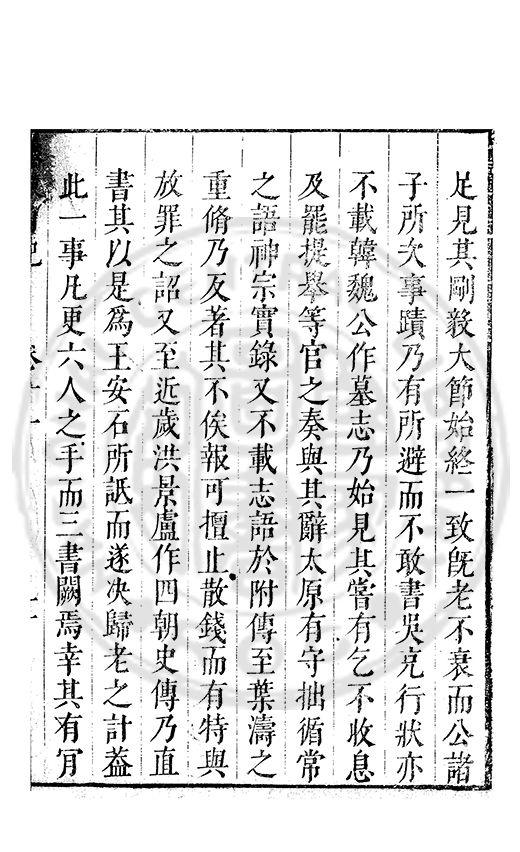 足見其剛毅大節始終一致旣老不衰而公諸
子所次事蹟乃有所避而不敢書吳充行狀亦
不載韓魏公作墓志乃始見其嘗有乞不收息
及罷提舉等官之奏與其辭太原有守拙循常
之語神宗實錄又不載志語於附傳至葉濤之
重脩乃反著其不俟報可擅止散錢而有特與
放罪之詔又至近歲洪景盧作四朝史傳乃直
書其以是爲王安石所詆而遂决歸老之計葢
此一事凡更六人之手而三書闕焉幸其有㝍